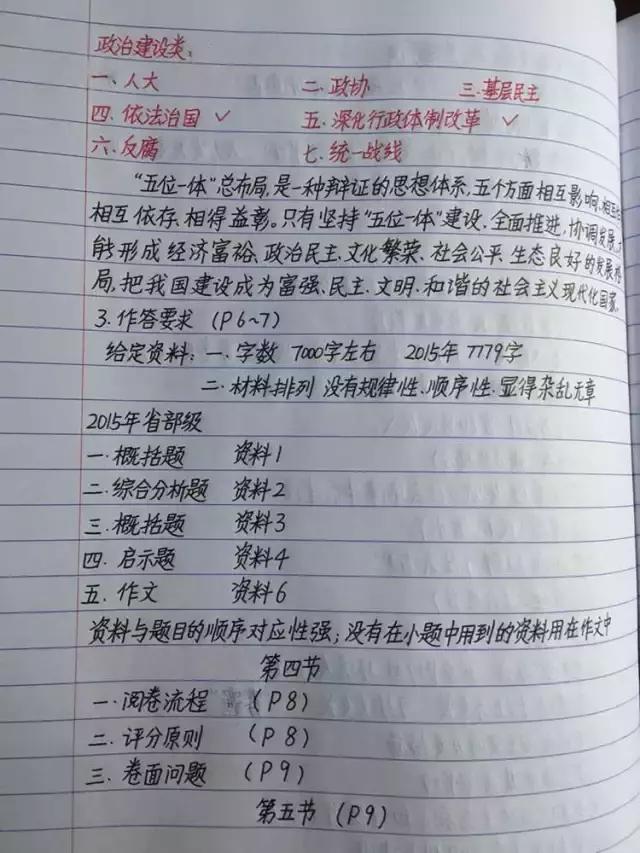 政治建设类:
一、人大 二、政协 三、基层民主
四、依法治国 ✓ 五、深化行政体制改革 ✓
六、反腐 七、统一战线
“五位一体”总布局,是一种辩证的思想体系,五个方面相互影响、相互
相互依存、相得益彰。只有坚持“五位一体”建设、全面推进、协调发展,
能形成经济富裕、政治民主、文化繁荣、社会公平、生态良好的发展格
局,把我国建设成为富强、民主、文明、和谐的社会主义现代化国家。
3.作答要求 (P6~7)
给定资料:一、字数 7000字左右 2015年 7779字
二、材料排列 没有规律性、顺序性、显得杂乱无章
2015年省部级
一.概括题 资料1
二.综合分析题 资料2
三.概括题 资料3
四.启示题 资料4
五.作文 资料6
资料与题目的顺序对应性强;没有在小题中用到的资料用在作文中
第四节
一.阅卷流程 (P8)
二.评分原则 (P8)
三.卷面问题 (P9)
第五节 (P9)